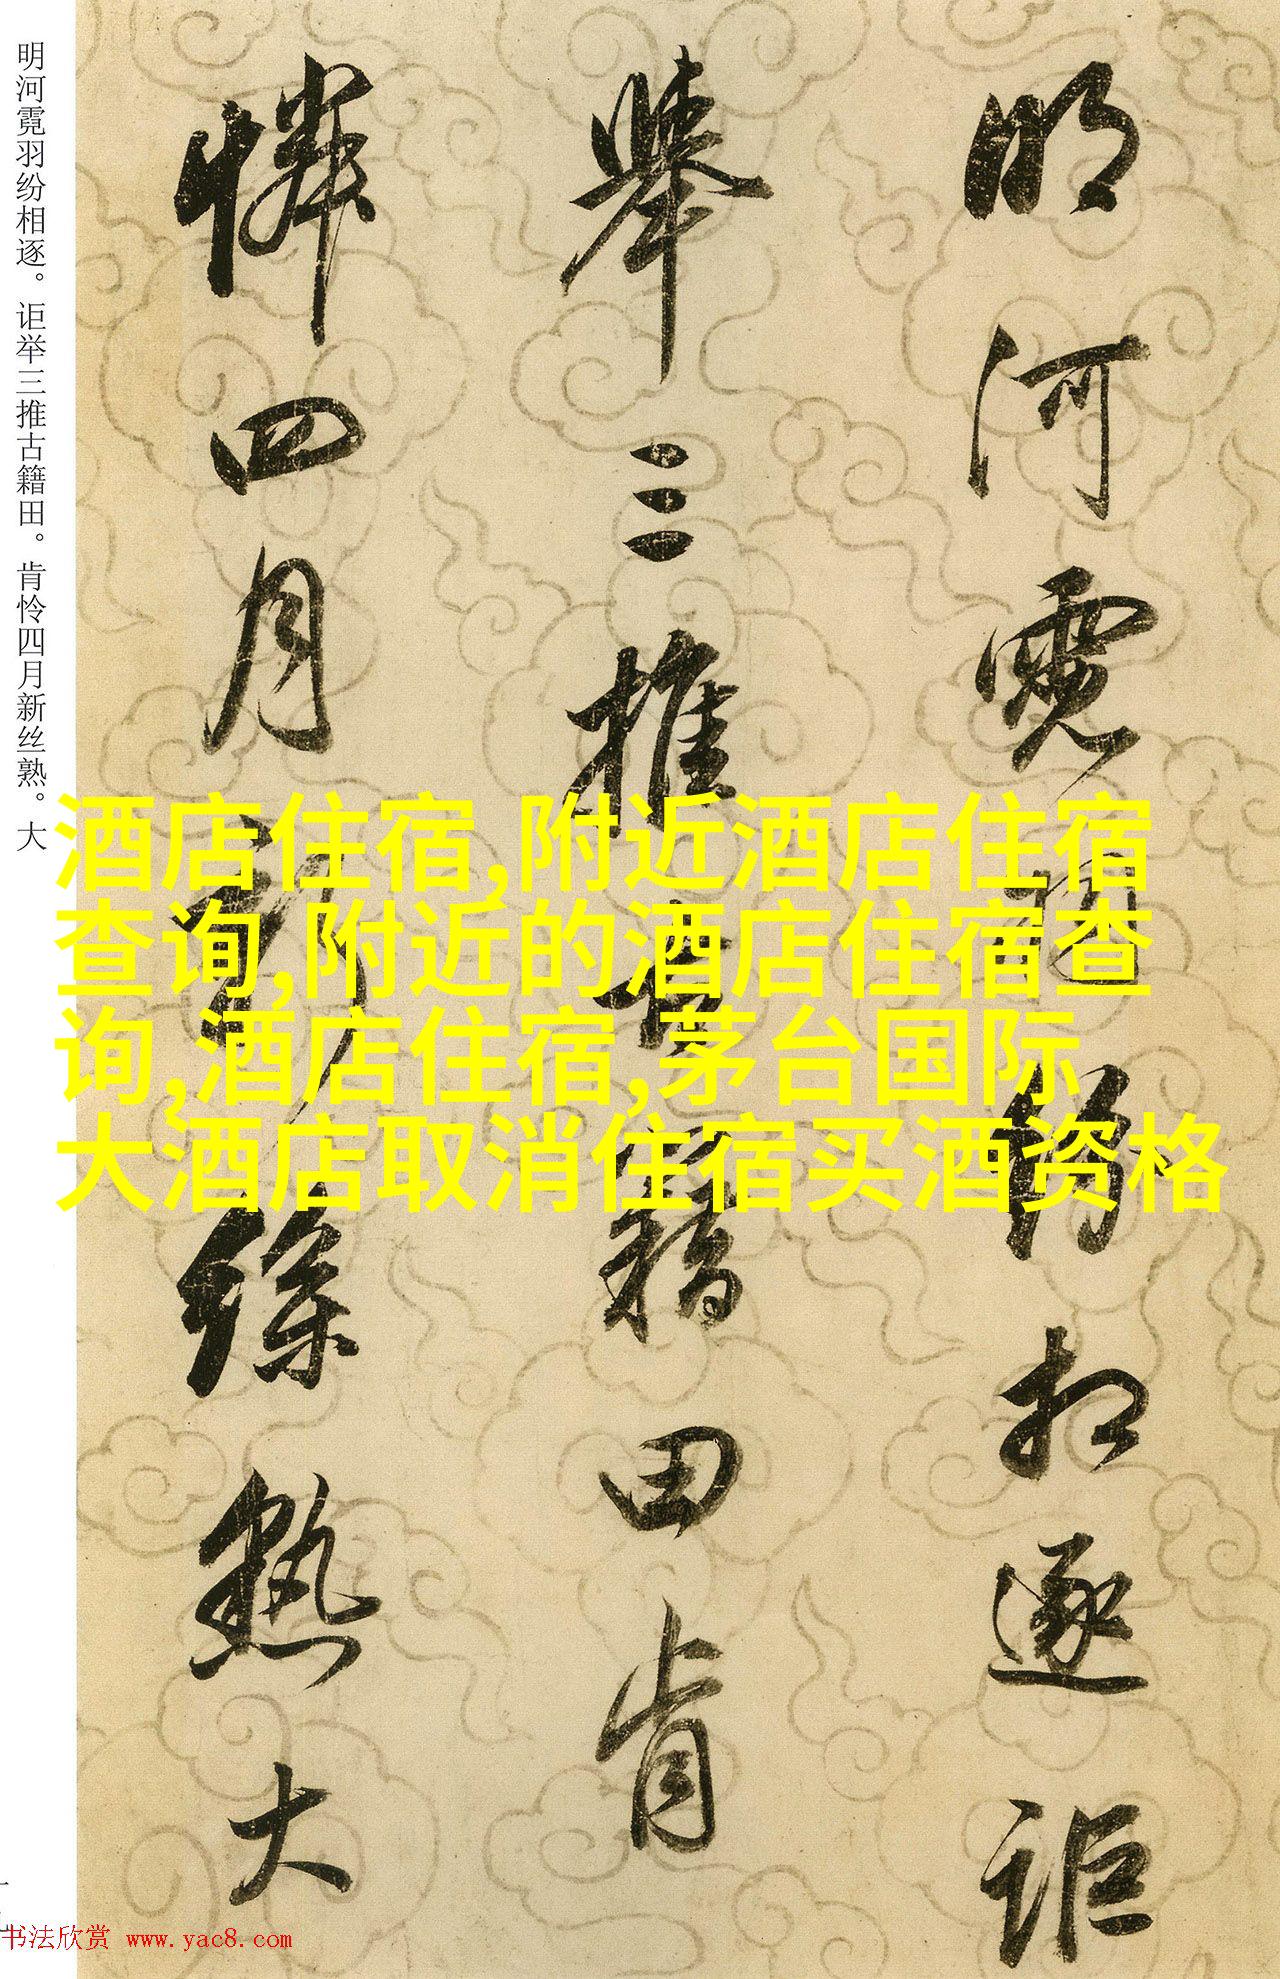 明河霓羽纷相逐。讵举三推古籍田。肯怜四月新丝熟。大
明河霓羽纷相逐讵
举三推古籍田肯
怜四月新丝熟大
酒店住宿,附近酒店住宿
查询,附近的酒店住宿查
询,酒店住宿,茅台国际
大酒店取消住宿买酒资格
书法欣赏 www.yac8.com